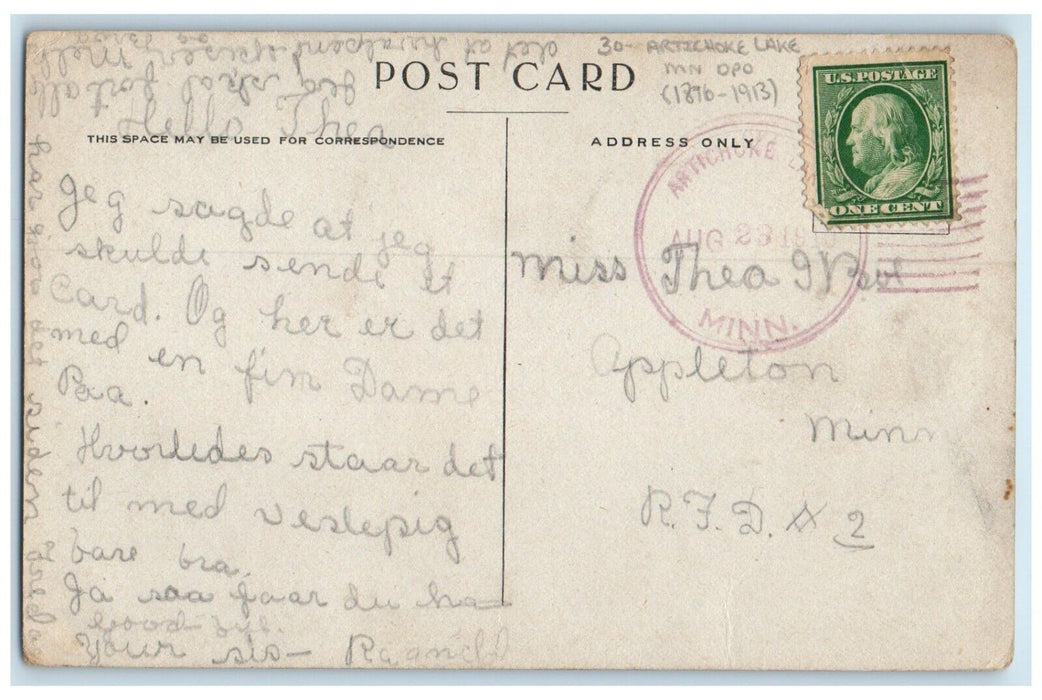 30- ARTICHOKE LAKE
MN DPO
(1896-1913)
POST CARD
THIS SPACE MAY BE USED FOR CORRESPONDENCE
ADDRESS ONLY
U.S. POSTAGE
ONE CENT
ARTICHOKE
AUG 23 19
MINN.
Hello Thea
Jeg sagde at jeg
skulde sende et
Card. Og her er det
med en fin Dame
Paa.
Hvorledes staar det
til med veslepig
bare bra.
Ja saa faar du ha
good-bye.
Your sis-
Miss Thea
Appleton
Minn
R.F.D. # 2
har det siden
Jeg skal fortælle